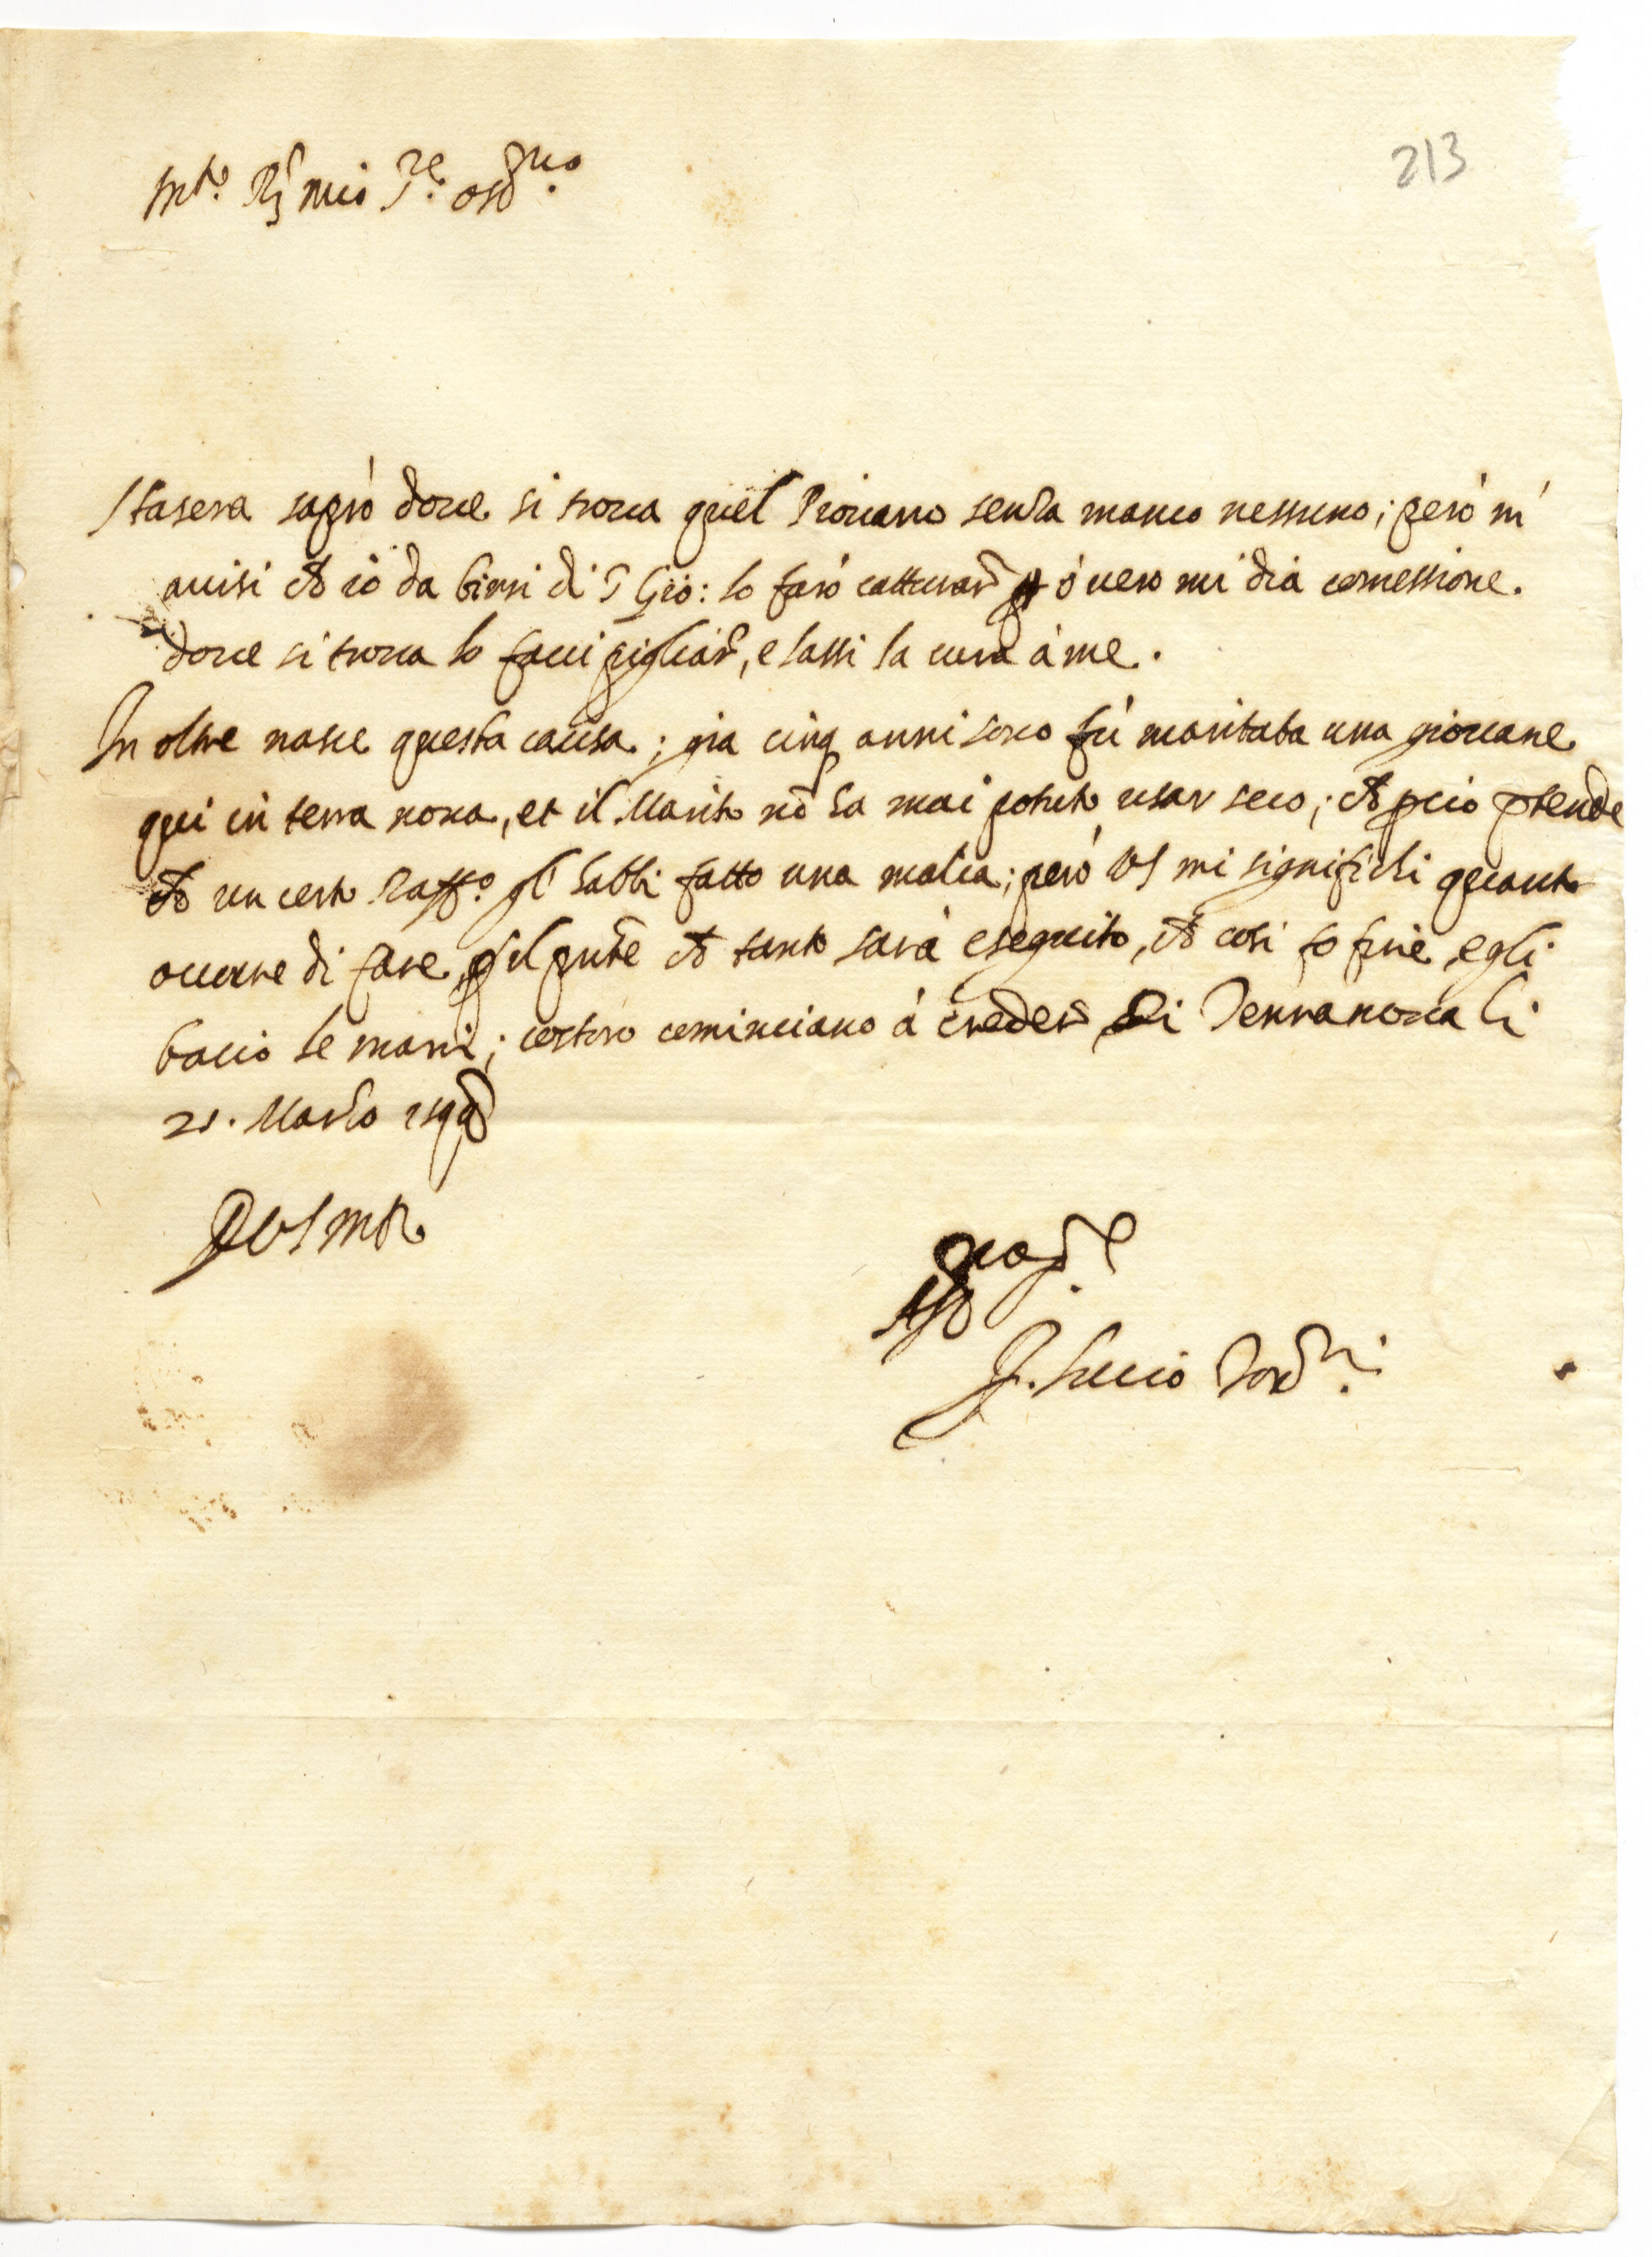 213
Mto. Rdo mio Pre. ossmo.
Stasera saprò dove si trova quel Piovano senza manco nessuno; però m'
avisi ch io da birri di S Gio: lo farò catturar ò vero mi dia comessione.
dove si trova lo facci pigliar, e lassi la cura à me.
In oltre nasce questa causa; gia cinq anni sono fù maritata una giovane
qui in terra nova, et il Marito nō ha mai potuto usar seco; ch p cio ptende
ch un certo Raffo. gl' habbi fatto una malia; però VS mi significhi quanto
occorre di fare, p il pnte ch tanto sarà eseguito, ch cosi fo fine, e gli
bacio le mani; costoro cominciano à creder Di Terranova li
21. Marzo 159
D VS M R.
Affo
F. Lucio